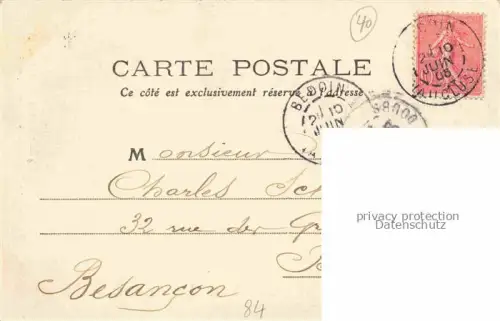 40
CARTE POSTALE
Ce côté est exclusivement réservé à l'adresse
BEDOIN
10
JUIN
VAUCLUSE
BEDOIN
10
JUIN
DOUBS
Monsieur
Charles Sch
32 rue des Gr
B
Besançon
84
privacy protection
Datenschutz